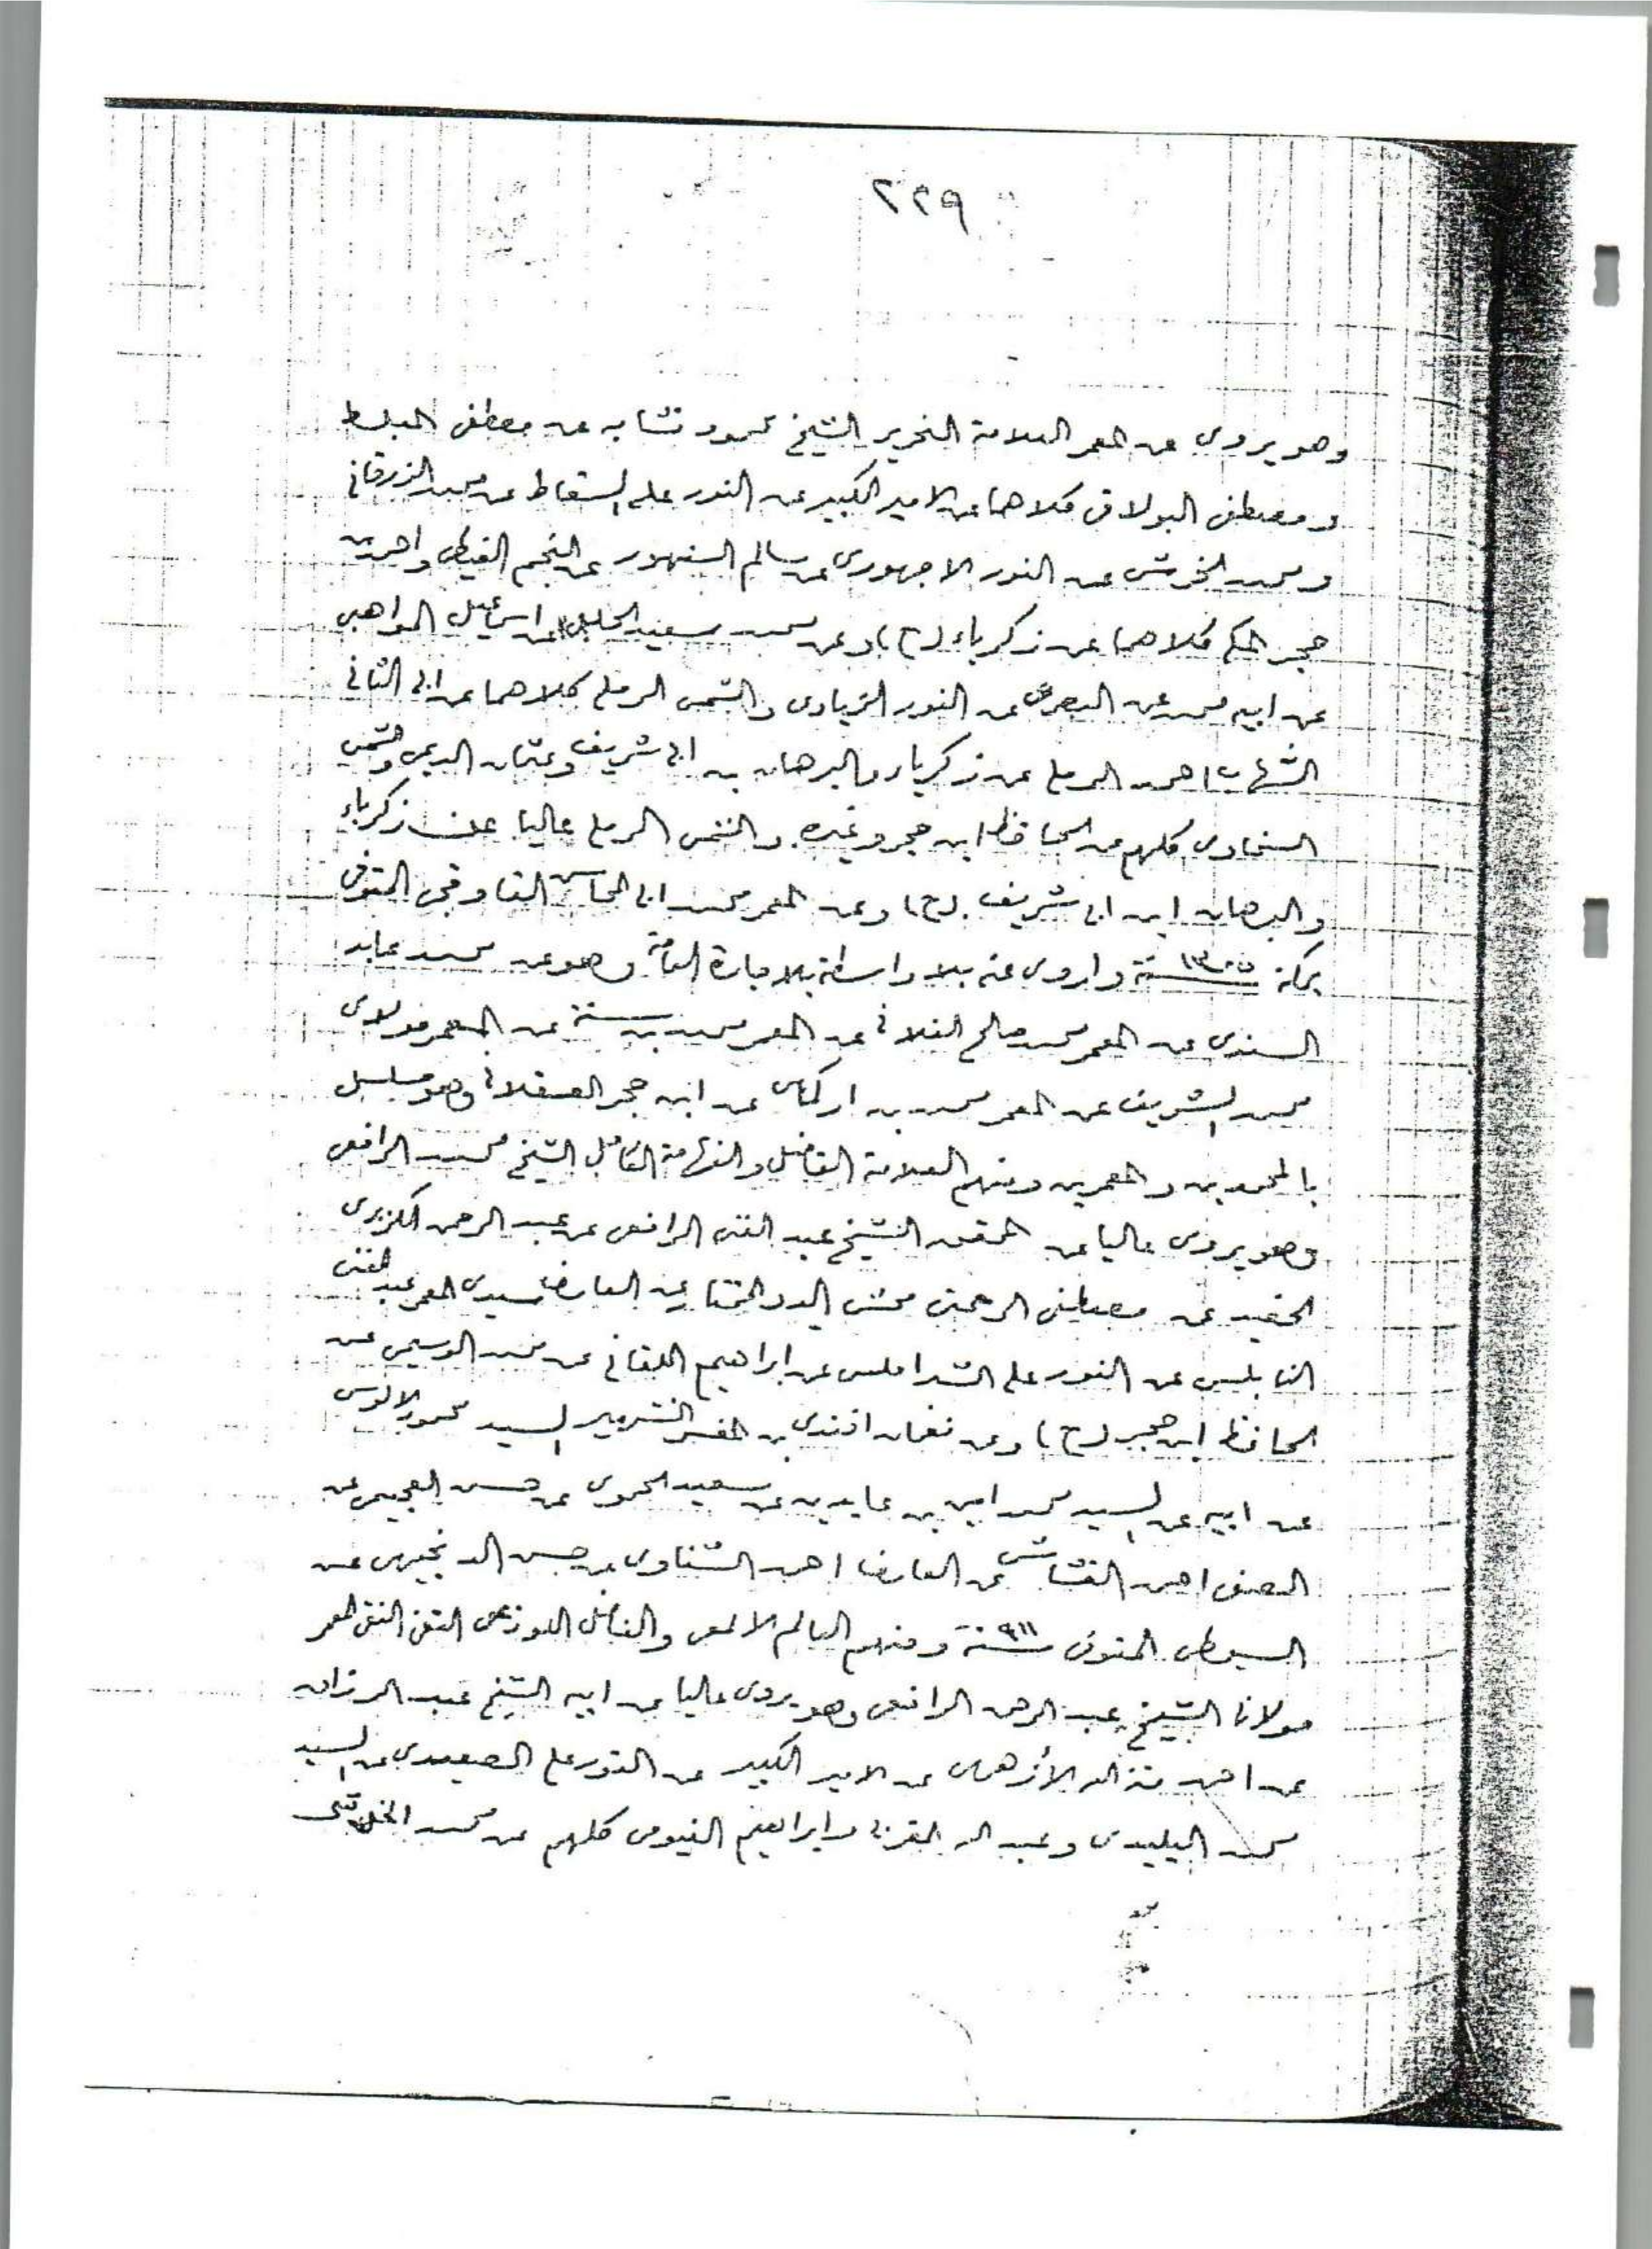 ٢٢٩
وهو يروى عن المعمر العلامة النحرير الشيخ محمود نشابه عن مصطفى المبلط
ومصطفى البولاقى كلاهما عن الامير الكبير عن النور على السقاط عن محمد الزرقانى
ومحمد الخرشى عن النور الاجهورى عن سالم السنهورى عن النجم الغيطى واحمد بن
حجر المكى كلاهما عن زكرياء (ح) وعن محمد سعيد الحلبى عن اسماعيل المواهبى
عن ابيه محمد عن البصرى عن النور الزيادى والشمس الرملى كلاهما عن ابى الثانى
الشهاب احمد الرملى عن زكرياء والبرهان بن ابى شريف وعثمان الديمى وشمس
السخاوى كلهم عن الحافظ ابن حجر وغيره والشمس الرملى عاليا عن زكرياء
والبرهان ابن ابى شريف (ح) وعن المعمر محمد ابى المحاسن القاوقجى المتوفى
بمكة سنة ١٣٠٥ واروى عنه بلا واسطة بالاجازة العامة وهو عن محمد عابد
السندى عن المعمر محمد صالح الفلانى عن المعمر محمد بن سنة عن المعمر مولاى
محمد الشريف عن المعمر محمد بن اركماش عن ابن حجر العسقلانى وهو مسلسل
بالمحمدين والمعمرين ومنهم العلامة الفاضل والفهامة الكامل الشيخ محمد الرافعى
وهو يروى عاليا عن المحقق الشيخ عبد الغنى الرافعى عن عبد الرحمن الكزبرى
الحفيد عن مصطفى الرحمتى محشى الدر المختار عن العارف سيدى المعمر عبد الغنى
النابلسى عن النور على الشبراملسى عن ابراهيم اللقانى عن محمد الوسيمى عن
الحافظ ابن حجر (ح) وعن نعمان افندى بن المفسر الشهير السيد محمود الالوسى
عن ابيه عن السيد محمد امين بن عابدين عن سعيد الحموى عن حسن العجيمى عن
الصفى احمد القشاشى عن العارف احمد الشناوى عن حسن الدنجيهى عن
السيوطى المتوفى سنة ٩١١ ومنهم العالم الالمعى والفاضل اللوزعى التقى النقى المعمر
مولانا الشيخ عبد الرحمن الرافعى وهو يروى عاليا عن ابيه الشيخ عبد الرزاق
عن احمد منة الله الأزهرى عن الامير الكبير عن النور على الصعيدى عن السيد
محمد البليدى وعبد الله المغربى وابراهيم الفيومى كلهم عن محمد الخرشى